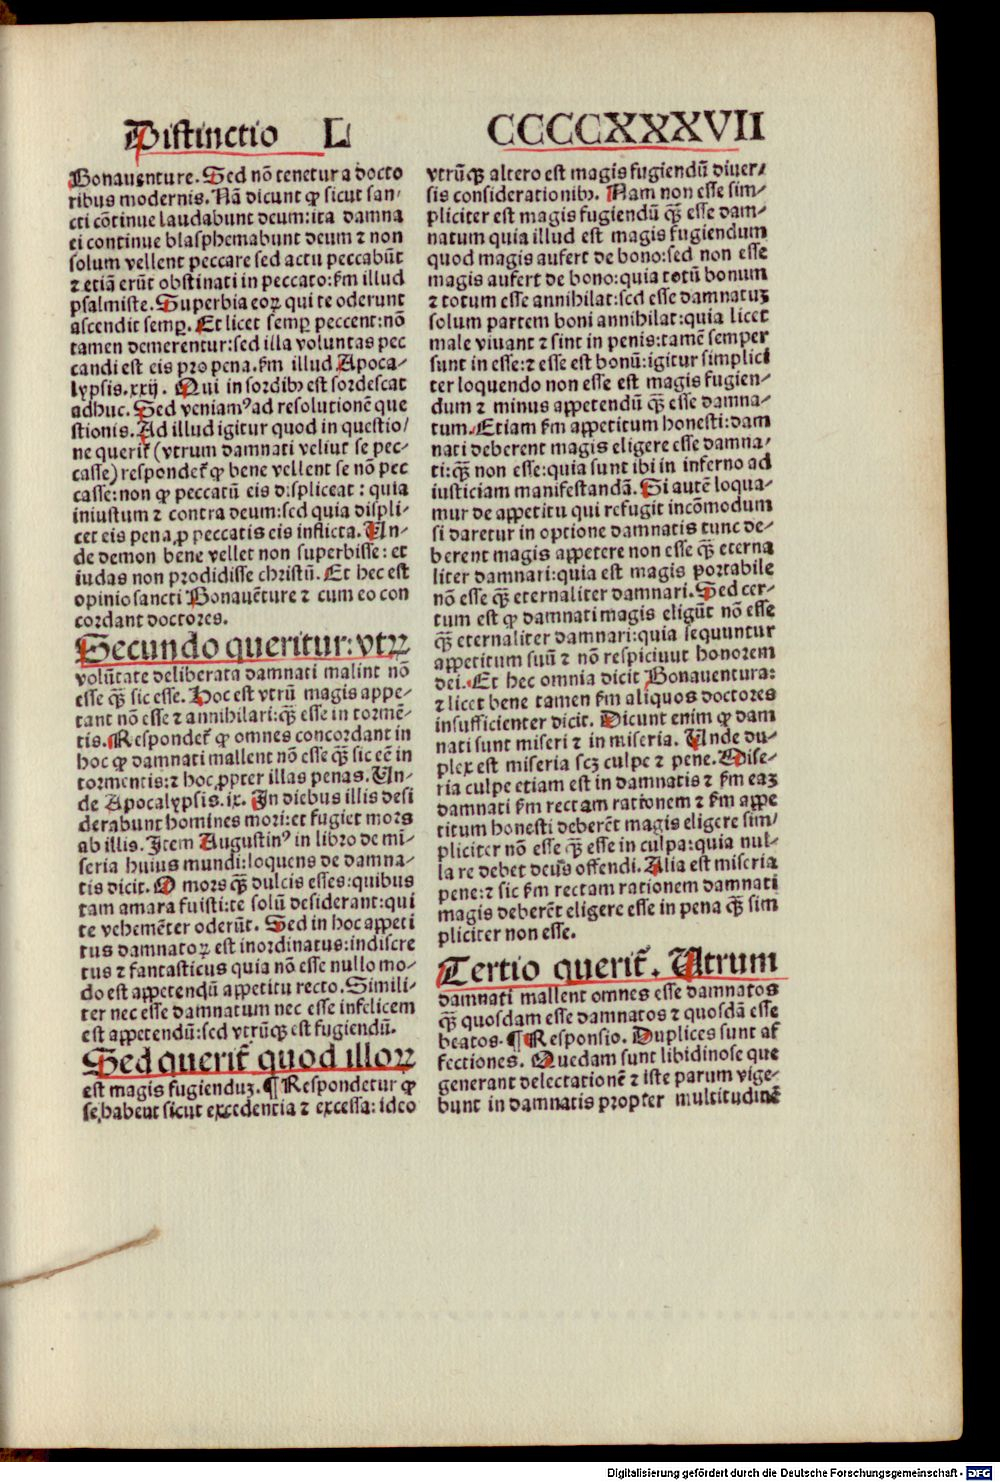 Distinctio L
CCCCXXXVII
Bonauenture. Sed nō tenetur a docto
ribus modernis. Nā dicunt ꝙ sicut san-
cti cōtinue laudabunt deum: ita damna
ti continue blasphemabunt deum ⁊ non
solum vellent peccare sed actu peccabūt
⁊ etiā erūt obstinati in peccato: ẜm illud
psalmiste. Superbia eoꝝ qui te oderunt
ascendit semꝑ. Et licet semꝑ peccent: nō
tamen demerentur: sed illa voluntas pec
candi est eis pro pena. ẜm illud Apoca-
lypsis. xxij. Qui in sordibꝫ est sordescat
adhuc. Sed veniamꝰ ad resolutionē que
stionis. Ad illud igitur quod in questio/
ne querit̄ (vtrum damnati velint se pec-
casse) respondet̄ ꝙ bene vellent se nō pec
casse: non ꝙ peccatū eis displiceat: quia
iniustum ⁊ contra deum: sed quia displi-
cet eis pena ꝓ peccatis eis inflicta. Un-
de demon bene vellet non superbisse: et
iudas non prodidisse christū. Et hec est
opinio sancti Bonauēture ⁊ cum eo con
cordant doctores.
Secundo queritur: vtrꝝ
volūtate deliberata damnati malint nō
esse q̄ꝫ sic esse. Hoc est vtrū magis appe-
tant nō esse ⁊ annihilari: q̄ꝫ esse in tormē-
tis. Respondet̄ ꝙ omnes concordant in
hoc ꝙ damnati mallent nō esse q̄ꝫ sic eē in
tormentis: ⁊ hoc ꝓpter illas penas. Un-
de Apocalypsis. ix. In diebus illis desi
derabunt homines mori: et fugiet mors
ab illis. Item Augustinꝰ in libro de mi-
seria huius mundi: loquens de damna-
tis dicit. O mors q̄ꝫ dulcis esses: quibus
tam amara fuisti: te solū desiderant: qui
te vehemēter oderūt. Sed in hoc appeti
tus damnatoꝝ est inordinatus: indiscre
tus ⁊ fantasticus quia nō esse nullo mo-
do est appetendū appetitu recto. Simili-
ter nec esse damnatum nec esse infelicem
est appetendū: sed vtrūqꝫ est fugiendū.
Sed querit̄ quod illoꝝ
est magis fugienduꝫ. ¶ Respondetur ꝙ
se habent sicut excedentia ⁊ excessa: ideo
vtrūqꝫ altero est magis fugiendū diuer-
sis considerationibꝫ. Nam non esse sim-
pliciter est magis fugiendū q̄ꝫ esse dam-
natum quia illud est magis fugiendum
quod magis aufert de bono: sed non esse
magis aufert de bono: quia totū bonum
⁊ totum esse annihilat: sed esse damnatuꝫ
solum partem boni annihilat: quia licet
male viuant ⁊ sint in penis: tamē semper
sunt in esse: ⁊ esse est bonū: igitur simplici
ter loquendo non esse est magis fugien-
dum ⁊ minus appetendū q̄ꝫ esse damna-
tum. Etiam ẜm appetitum honesti: dam
nati deberent magis eligere esse damna-
ti: q̄ꝫ non esse: quia sunt ibi in inferno ad
iusticiam manifestandā. Si autē loqua-
mur de appetitu qui refugit incōmodum
si daretur in optione damnatis tunc de-
berent magis appetere non esse q̄ꝫ eterna
liter damnari: quia est magis portabile
nō esse q̄ꝫ eternaliter damnari. Sed cer-
tum est ꝙ damnati magis eligūt nō esse
q̄ꝫ eternaliter damnari: quia sequuntur
appetitum suū ⁊ nō respiciunt honorem
dei. Et hec omnia dicit Bonauentura:
⁊ licet bene tamen ẜm aliquos doctores
insufficienter dicit. Dicunt enim ꝙ dam
nati sunt miseri ⁊ in miseria. Unde du-
plex est miseria scꝫ culpe ⁊ pene. Mise-
ria culpe etiam est in damnatis ⁊ ẜm eaꝫ
damnati ẜm rectam rationem ⁊ ẜm appe
titum honesti deberēt magis eligere sim/
pliciter nō esse q̄ꝫ esse in culpa: quia nul-
la re debet deus offendi. Alia est miseria
pene: ⁊ sic ẜm rectam rationem damnati
magis deberēt eligere esse in pena q̄ꝫ sim
pliciter non esse.
Tertio querit̄. Utrum
damnati mallent omnes esse damnatos
q̄ꝫ quosdam esse damnatos ⁊ quosdā esse
beatos. ¶ Responsio. Duplices sunt af
fectiones. Quedam sunt libidinose que
generant delectationē ⁊ iste parum vige-
bunt in damnatis propter multitudinē
Digitalisierung gefördert durch die Deutsche Forschungsgemeinschaft - DFG